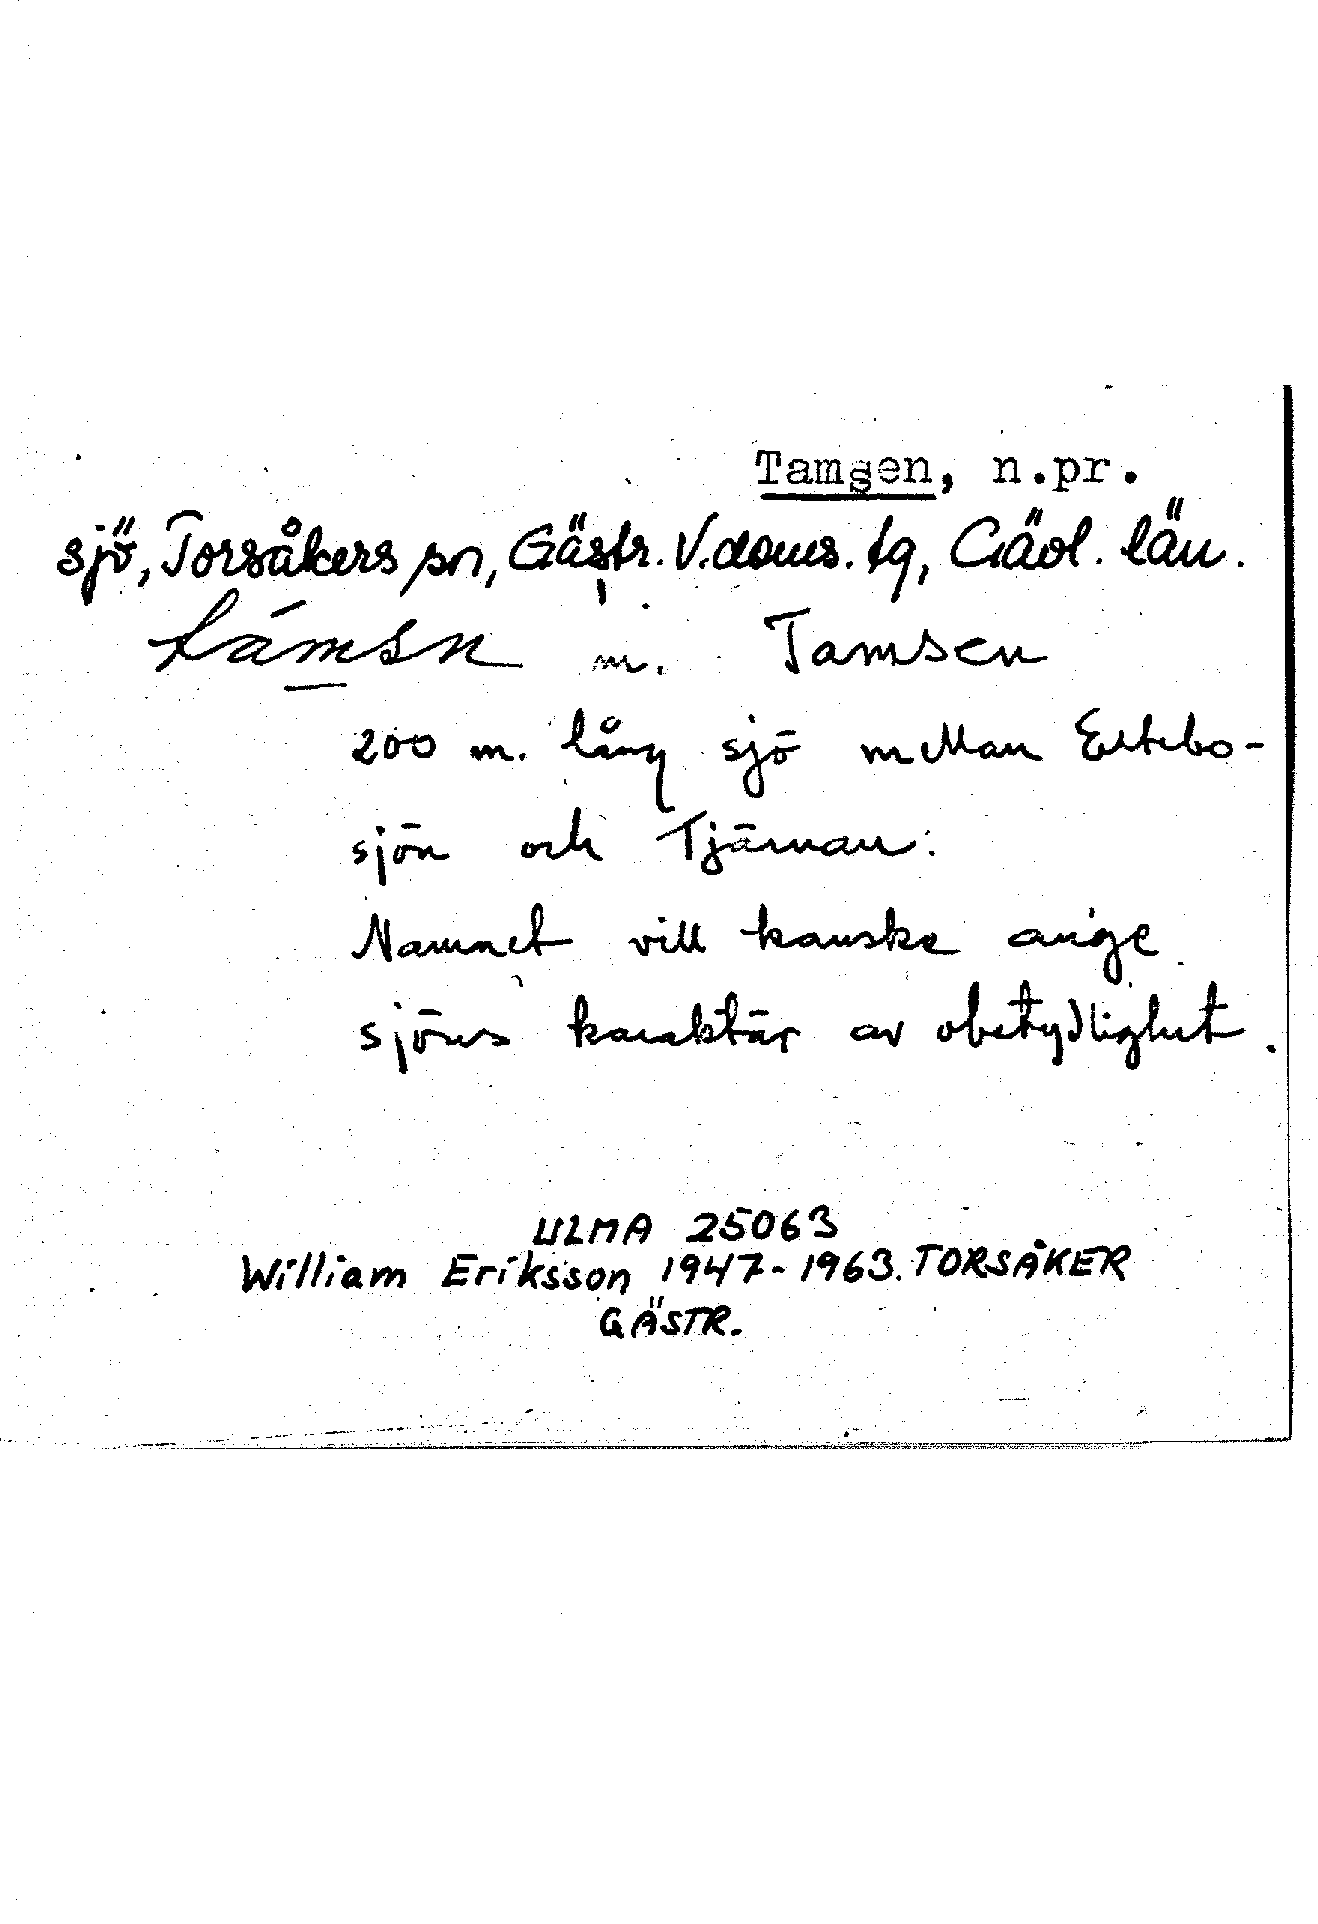 Tamsen, n.pr.
sjö, Torsåkers sn, Gästr. V. doms. tg, Gävl. län.
támsn m. Tamsen
200 m. lång sjö mellan Ertebo-
sjön och Tjärnan.
Namnet vill kanske ange
sjöns karaktär av obetydlighet.
ULMA 25063
William Eriksson 1947-1963. TORSÅKER
GÄSTR.